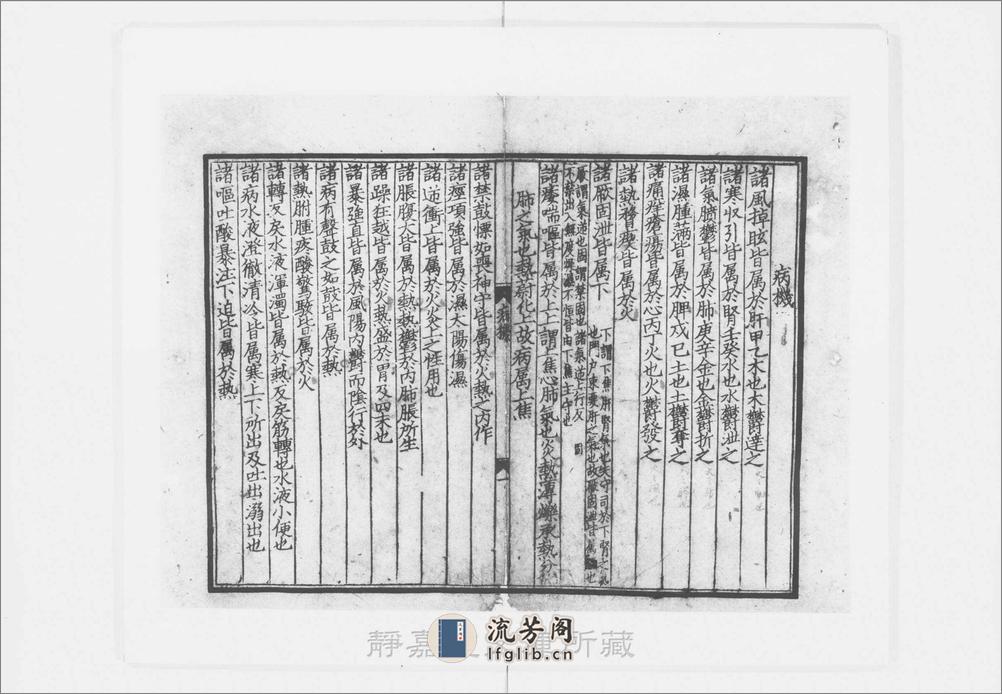 病機
諸風掉眩皆属於肝甲乙木也木鬱達之
諸寒収引皆属於腎壬癸水也水鬱泄之
諸氣膹鬱皆属於肺庚辛金也金鬱折之
諸濕腫滿皆属於脾戊己土也土鬱奪之
諸痛痒瘡瘍皆属於心丙丁火也火鬱發之
諸熱瞀瘈皆属於火
諸厥固泄皆属下
下謂下焦肝腎氣也夫守司於下腎之氣
也門户束要肝之氣也故厥固泄皆属下也
厥謂氣逆也固謂禁固也諸氣逆上行及固
不禁出入無度燥濕不恒皆由下焦主守也
諸痿喘嘔皆属於上上謂上焦心肺氣也炎熱薄爍承熱分
肺之氣也熱欝化故病属上焦
病機
一
諸禁鼓慄如喪神守皆属於火熱之内作
諸痙項強皆属於濕太陽傷濕
諸逆衝上皆属於火炎上之性用也
諸脹腹大皆属於熱熱鬱於内肺脹所生
諸躁狂越皆属於火熱盛於胃及四末也
諸暴強直皆属於風陽内鬱而陰行於外
諸病有聲鼓之如鼓皆属於熱
諸熱胕腫疼酸驚駭皆属於火
諸轉反戾水液渾濁皆属於熱反戾筋轉也水液小便也
諸病水液澄徹清冷皆属寒上下所出及吐出溺出也
諸嘔吐酸暴注下迫皆属於熱
靜嘉
所藏
流芳阁
lfglib.cn